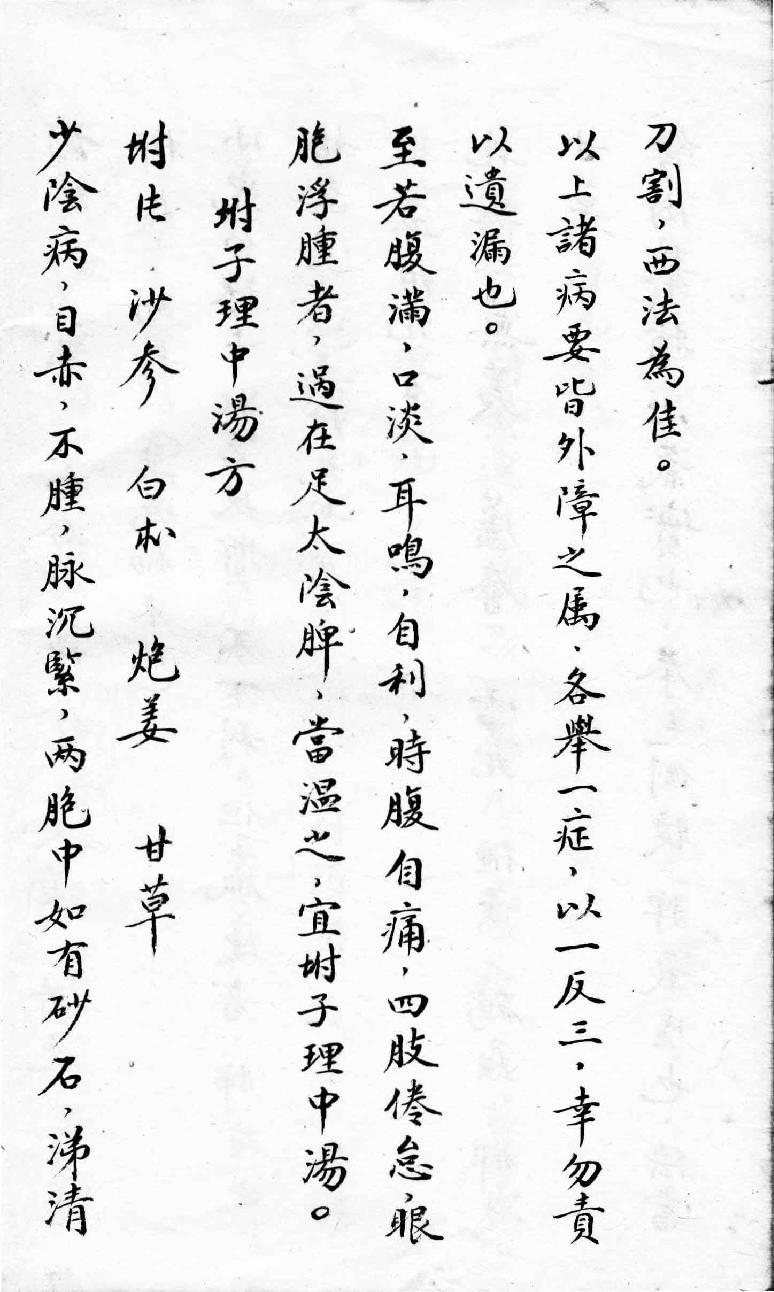 刀割，西法為佳。
以上諸病要皆外障之属、各舉一症，以一反三，幸勿責
以遺漏也。
至若腹滿，口淡，耳鳴，自利，時腹自痛，四肢倦怠，眼
胞浮腫者，過在足太陰脾，當温之，宜坿子理中湯。
坿子理中湯方
坿片 沙參 白朮 炮姜 甘草
少陰病，目赤，不腫，脉沉緊，两胞中如有砂石，涕清